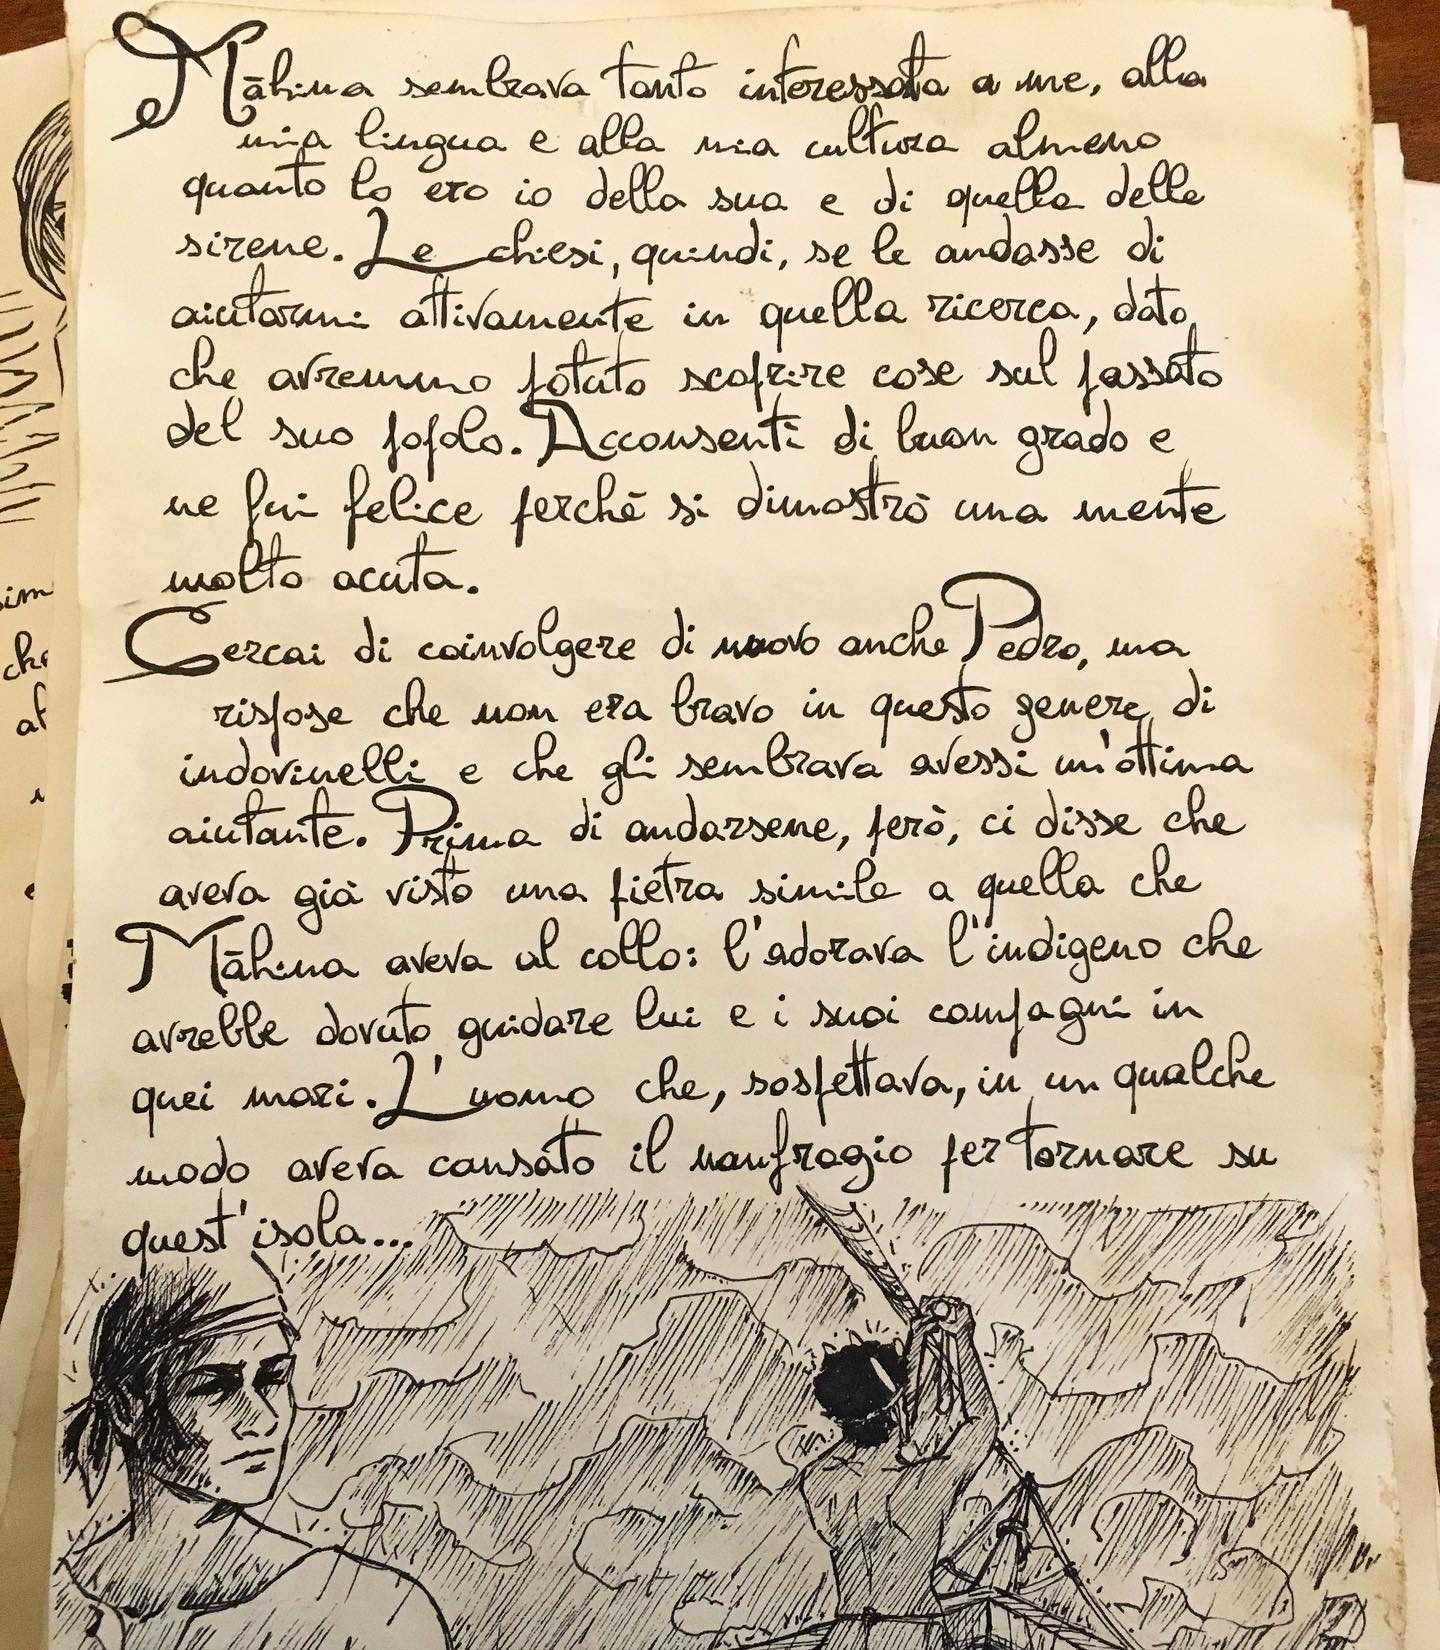 Māhina sembrava tanto interessata a me, alla
mia lingua e alla mia cultura almeno
quanto lo ero io della sua e di quella delle
sirene. Le chiesi, quindi, se le andasse di
aiutarmi attivamente in quella ricerca, dato
che avremmo potuto scoprire cose sul passato
del suo popolo. Acconsentì di buon grado e
ne fui felice perchè si dimostrò una mente
molto acuta.
Cercai di coinvolgere di nuovo anche Pedro, ma
rispose che non era bravo in questo genere di
indovinelli e che gli sembrava avessi un'ottima
aiutante. Prima di andarsene, però, ci disse che
aveva già visto una pietra simile a quella che
Māhina aveva al collo: l'adorava l'indigeno che
avrebbe dovuto guidare lui e i suoi compagni in
quei mari. L'uomo che, sospettava, in un qualche
modo aveva causato il naufragio per tornare su
quest'isola...
sim
che